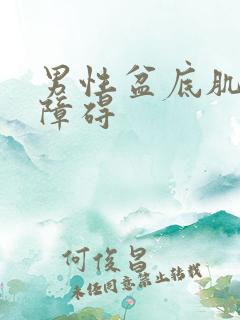 男性盆底肌
障碍
何俊昌
未经同意禁止转载